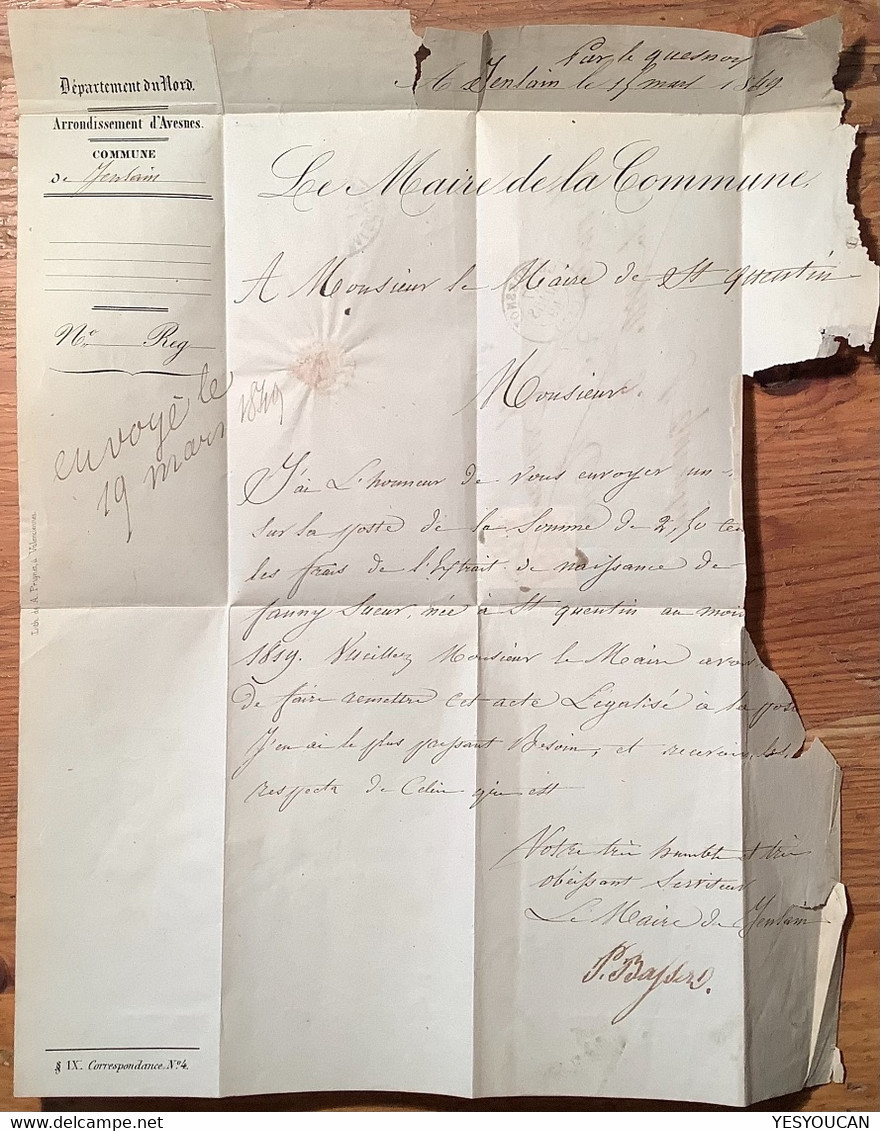 Par le quesnoy
A Jenlain le 15 mars 1849
Département du Nord.
Arrondissement d'Avesnes.
COMMUNE
de Jenlain
Le Maire de la Commune,
A Monsieur le Maire de St quentin
N.º Reg
Monsieur.
envoyé le
19 mars 1849
J'ai L'honneur de vous envoyer un
sur la poste de la Somme de 2,50 cen
les frais de l'Extrait de naissance de
fanny Sueur, née à St quentin au mois
1819. Vueillez Monsieur le Maire avoir
de faire remettre cet acte Légalisé à la post
J'en ai le plus pressant Besoin, et recevoir les
respects de Celui qui est
Votre très humble et très
obéissant Serviteur
Le Maire de Jenlain
Lith. de A. Prignet, à Valenciennes
§ IX. Correspondance. Nº 4.
YESYOUCAN